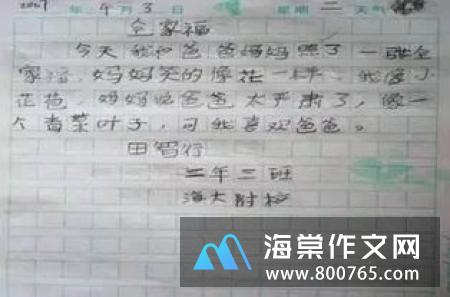 2007 年 4 月 3 日 星期 二 天气
全家福
今天我和爸爸妈妈照了一张全
家福，妈妈笑的像花一样，我像小
花苞，妈妈说爸爸太严肃了，像一
个青菜叶子，可我喜欢爸爸。
田智行
二年三班
海大附校
海棠作文网
www.800765.com